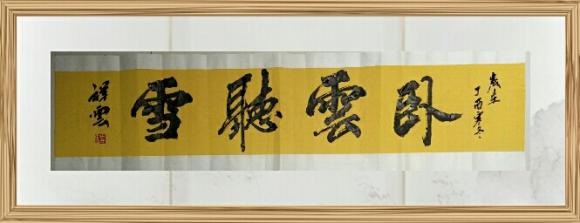 歲在
丁酉寒冬
卧雲聽雪
雲